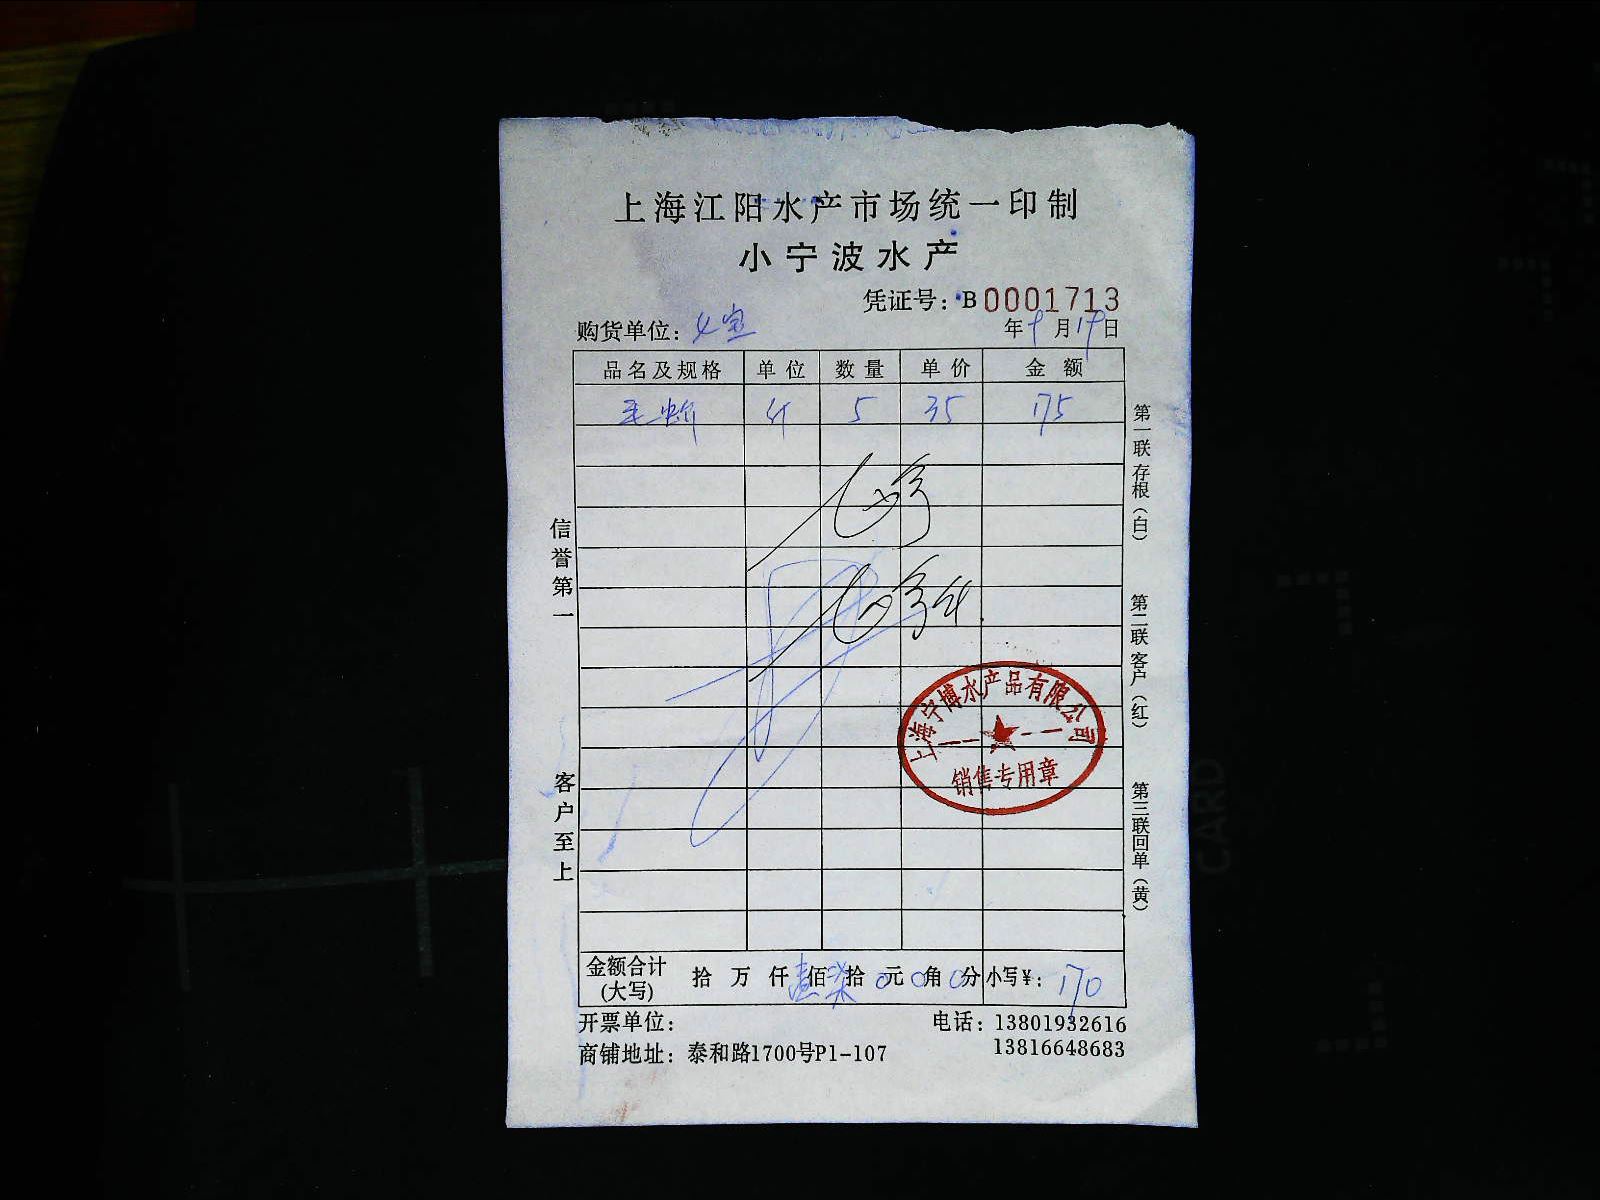 上海江阳水产市场统一印制
小宁波水产
凭证号：B0001713
购货单位：
年9月19日
品名及规格 单位 数量 单价 金额
毛蚶 斤 5 35 175
信誉第一
客户至上
第一联 存根（白）
第二联 客户（红）
第三联 回单（黄）
上海宁博水产品有限公司
销售专用章
金额合计(大写) 拾 万 仟 壹佰 柒拾 0元 0角 0分 小写¥：170
开票单位：
电话：13801932616
13816648683
商铺地址：泰和路1700号P1-107
CARD